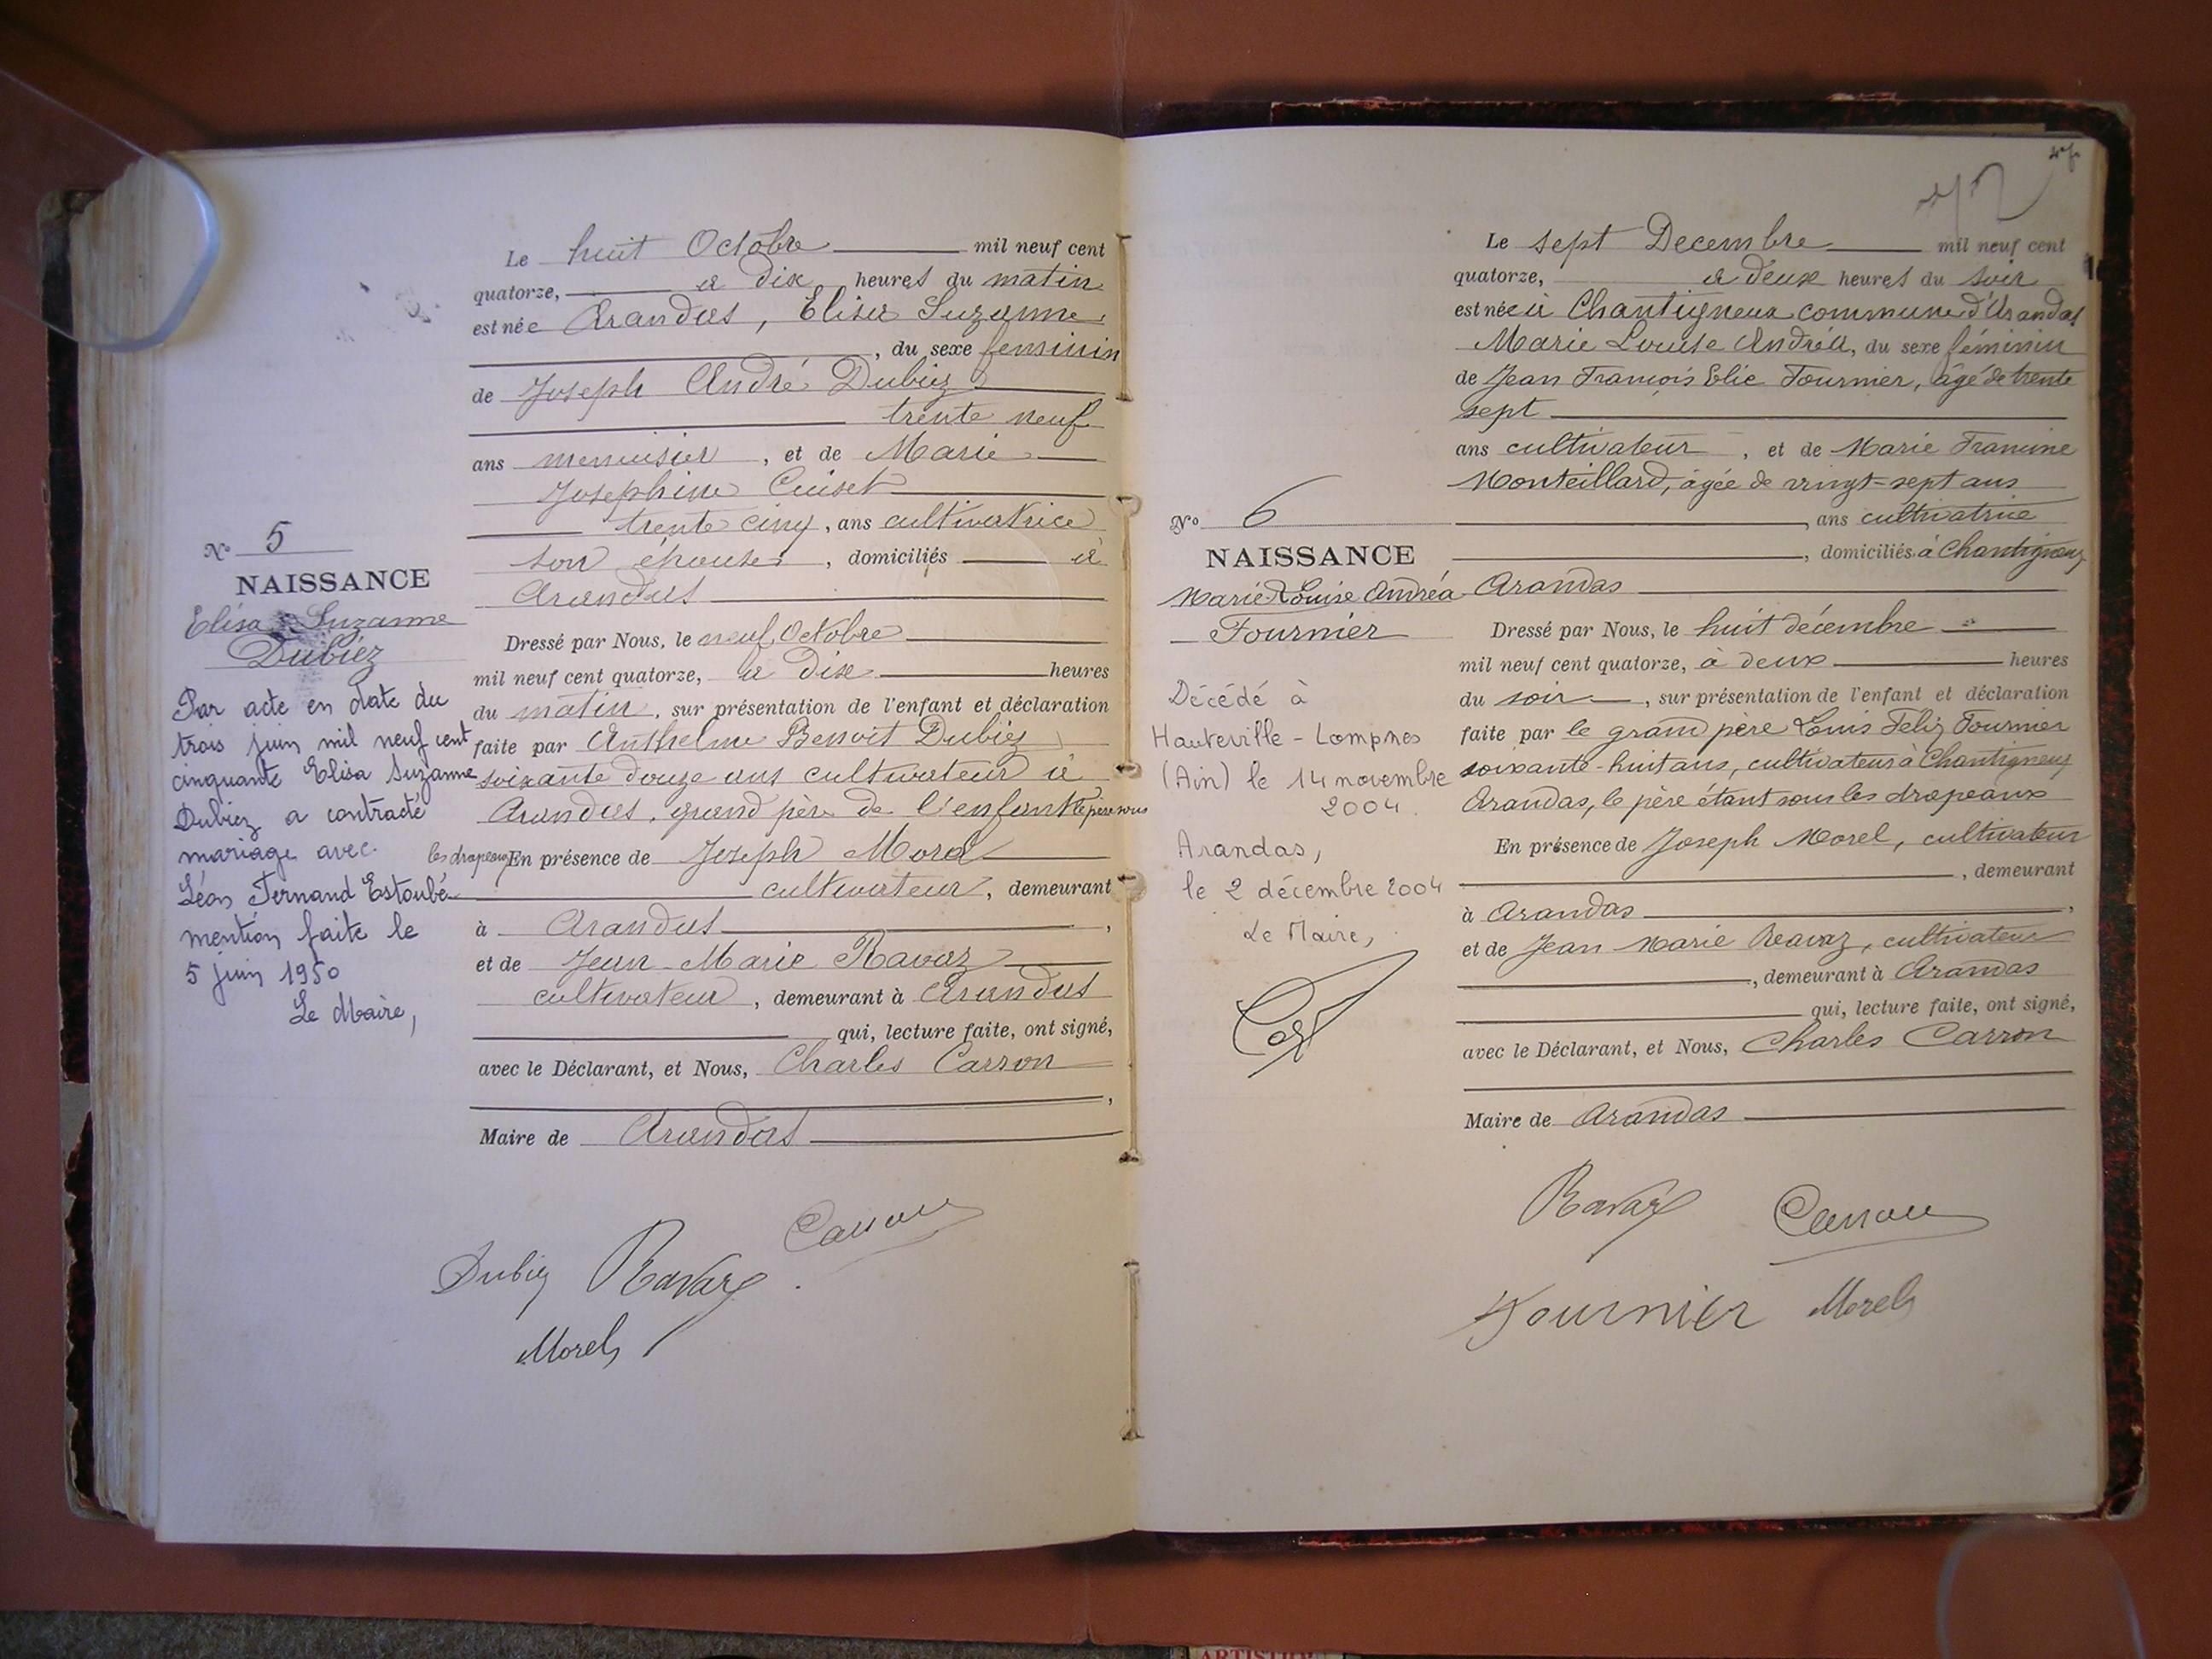 Le huit Octobre mil neuf cent
quatorze, à dix heures du matin
est née Arandas, Elisa Suzanne
, du sexe feminin
de Joseph André Dubiez
trente neuf
ans menuisier , et de Marie
Josephine Cuiset
trente cinq , ans cultivatrice
son épouse , domiciliés à
Arandas
Dressé par Nous, le neuf Octobre
mil neuf cent quatorze, à dix heures
du matin , sur présentation de l'enfant et déclaration
faite par Anthelme Benoit Dubiez
soixante douze ans cultivateur à
Arandas, grand père de l'enfant le père sous
les drapeaux En présence de Joseph Morel
cultivateur , demeurant
à Arandas ,
et de Jean-Marie Ravaz
cultivateur , demeurant à Arandas
qui, lecture faite, ont signé,
avec le Déclarant, et Nous, Charles Carron
,
Maire de Arandas
Dubiez Ravaz Carron
Morel
No 5
NAISSANCE
Elisa Suzanne
Dubiez
Par acte en date du
trois juin mil neuf cent
cinquante Elisa Suzanne
Dubiez a contracté
mariage avec
Léon Fernand Estoubé
mention faite le
5 juin 1950
Le Maire,
Le sept Decembre mil neuf cent
quatorze, à deux heures du soir
est née à Chantigneux commune d'Arandas
Marie Louise Andréa, du sexe féminin
de Jean François Elie Fournier, âgé de trente
sept
ans cultivateur , et de Marie Francine
Monteillard, âgée de vingt-sept ans
, ans cultivatrice
, domiciliés à Chantigneux
Arandas
Dressé par Nous, le huit décembre
mil neuf cent quatorze, à deux heures
du soir , sur présentation de l'enfant et déclaration
faite par le grand père Louis Félix Fournier
soixante-huit ans, cultivateur à Chantigneux
Arandas, le père étant sous les drapeaux
En présence de Joseph Morel, cultivateur
, demeurant
à Arandas ,
et de Jean Marie Ravaz, cultivateur
, demeurant à Arandas
qui, lecture faite, ont signé,
avec le Déclarant, et Nous, Charles Carron
Maire de Arandas
Ravaz Carron
Fournier Morel
No 6
NAISSANCE
Marie Louise Andréa
Fournier
Décédé à
Hauteville-Lompnes
(Ain) le 14 novembre
2004.
Arandas,
le 2 décembre 2004
Le Maire,
ARTISTIQUE